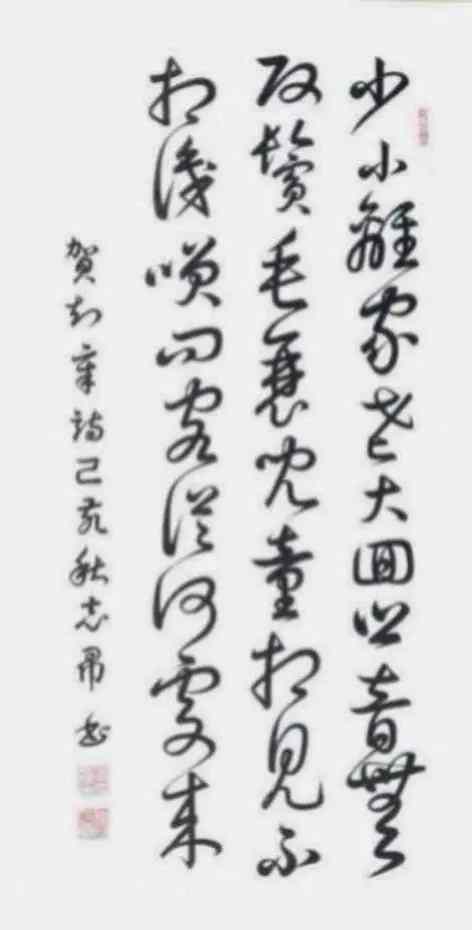 少小離家老大回鄉音無
改鬢毛衰兒童相見不
相識咲問客從何處來
賀知章詩己亥秋志昂書